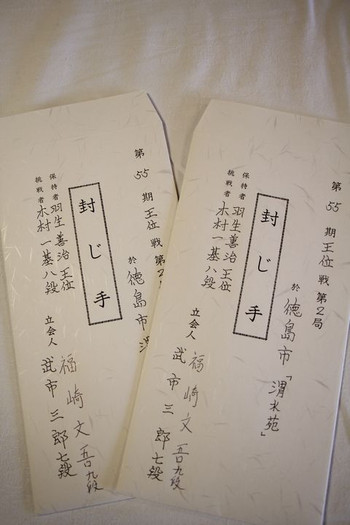 第55期王位戦第2局
於 徳島市「渭水苑」
封じ手
保持者 羽生善治王位
挑戦者 木村一基八段
立会人 福崎文吾九段
武市三郎七段
第55期王位戦第2局
於 徳島市
封じ手
保持者 羽生善治王位
挑戦者 木村一基八段
立会人 福崎文吾九段
武市三郎七段